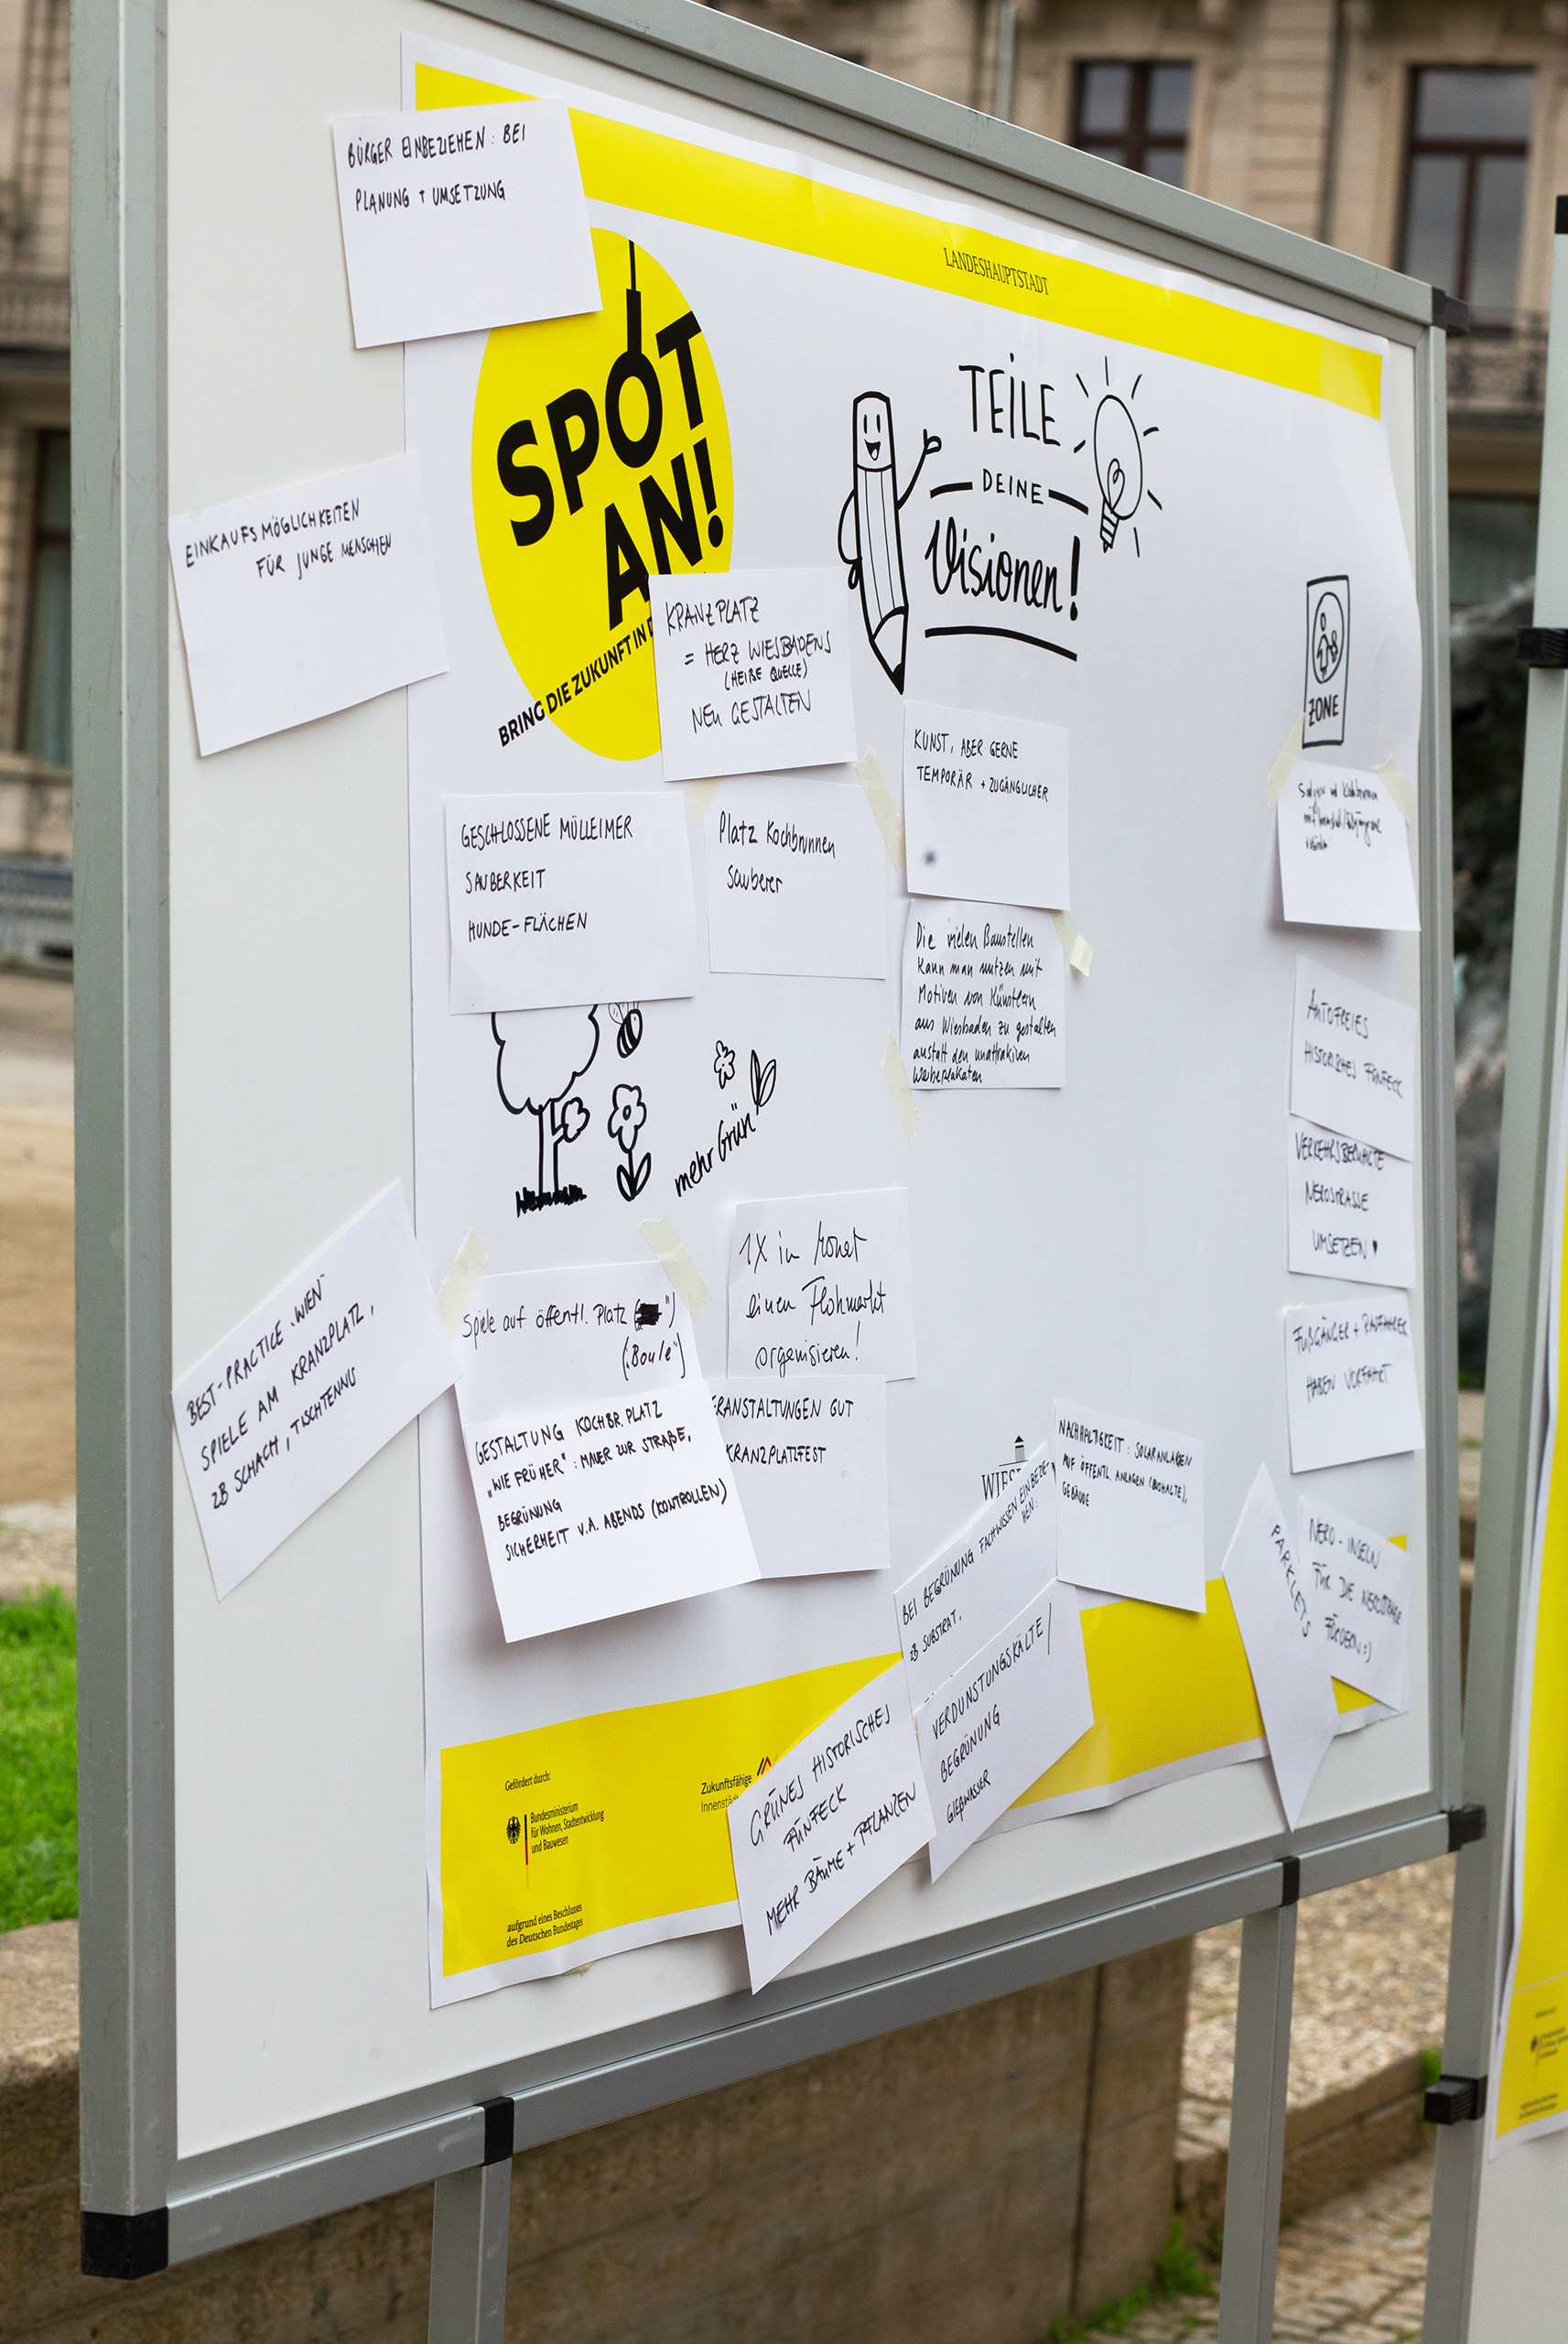 BÜRGER EINBEZIEHEN: BEI
PLANUNG + UMSETZUNG
LANDESHAUPTSTADT
SPOT
AN!
BRING DIE ZUKUNFT IN
TEILE
DEINE
Visionen!
EINKAUFSMÖGLICHKEITEN
FÜR JUNGE MENSCHEN
KRANZPLATZ
= HERZ WIESBADENS
(HEIßE QUELLE)
NEU GESTALTEN
ZONE
KUNST, ABER GERNE
TEMPORÄR + ZUGÄNGLICHER
GESCHLOSSENE MÜLLEIMER
SAUBERKEIT
HUNDE-FLÄCHEN
Platz Kochbrunnen
Sauberer
Die vielen Baustellen
kann man nutzen mit
Motiven von Künstlern
aus Wiesbaden zu gestalten
anstatt den unattraktiven
Werbeplakaten
mehr Grün
AUTOFREIES
HISTORISCHES FÜNFECK
VERKEHRSBERUHIGTE
NEROSTRASSE
UMSETZEN
FUßGÄNGER + RADFAHRER
HABEN VORFAHRT
BEST-PRACTICE "WIEN"
SPIELE AM KRANZPLATZ,
ZB SCHACH, TISCHTENNIS
Spiele auf öffentl. Platz
("Boule")
1X in Monat
einen Flohmarkt
organisieren!
GESTALTUNG KOCHBR. PLATZ
„WIE FRÜHER": MAUER ZUR STRAßE,
BEGRÜNUNG
SICHERHEIT V.A. ABENDS (KONTROLLEN)
ERANSTALTUNGEN GUT
KRANZPLATZFEST
WIES
BEI BEGRÜNUNG FACHWISSEN EINBEZIE-
HEN:
ZB SUBSTRAT,
NACHHALTIGKEIT: SOLARANLAGEN
AUF ÖFFENTL. ANLAGEN
GEBÄUDE
PARKLETS
NERO-INSELN
FÜR DIE NEROSTRAßE
FÖRDERN :)
VERDUNSTUNGSKÄLTE/
BEGRÜNUNG
GIEßWASSER
GRÜNES HISTORISCHES
FÜNFECK
MEHR BÄUME + PFLANZEN
Gefördert durch:
Bundesministerium
für Wohnen, Stadtentwicklung
und Bauwesen
aufgrund eines Beschlusses
des Deutschen Bundestages
Zukunftsfähige
Innenstädt